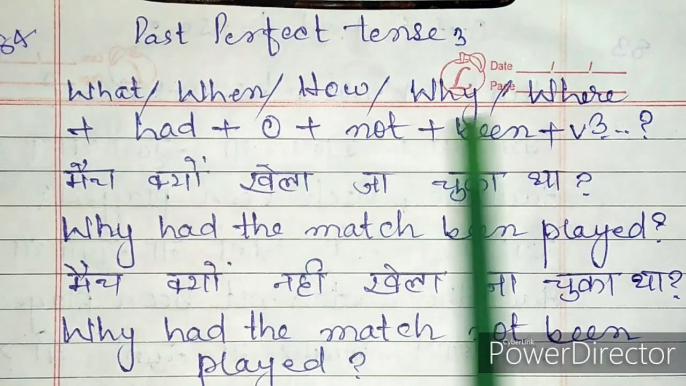 Past Perfect tense
Date
Page
What/ When/ How/ Why/ Where
+ had + O + not + been + v3..?
मैच क्यों खेला जा चुका था?
Why had the match been played?
मैच क्यों नही खेला जा चुका था?
Why had the match not been
played?
CyberLink
PowerDirector